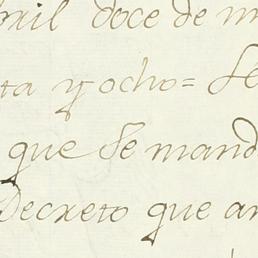 bril doce de m
ta y ocho= Se
que Se mand
Decreto que an